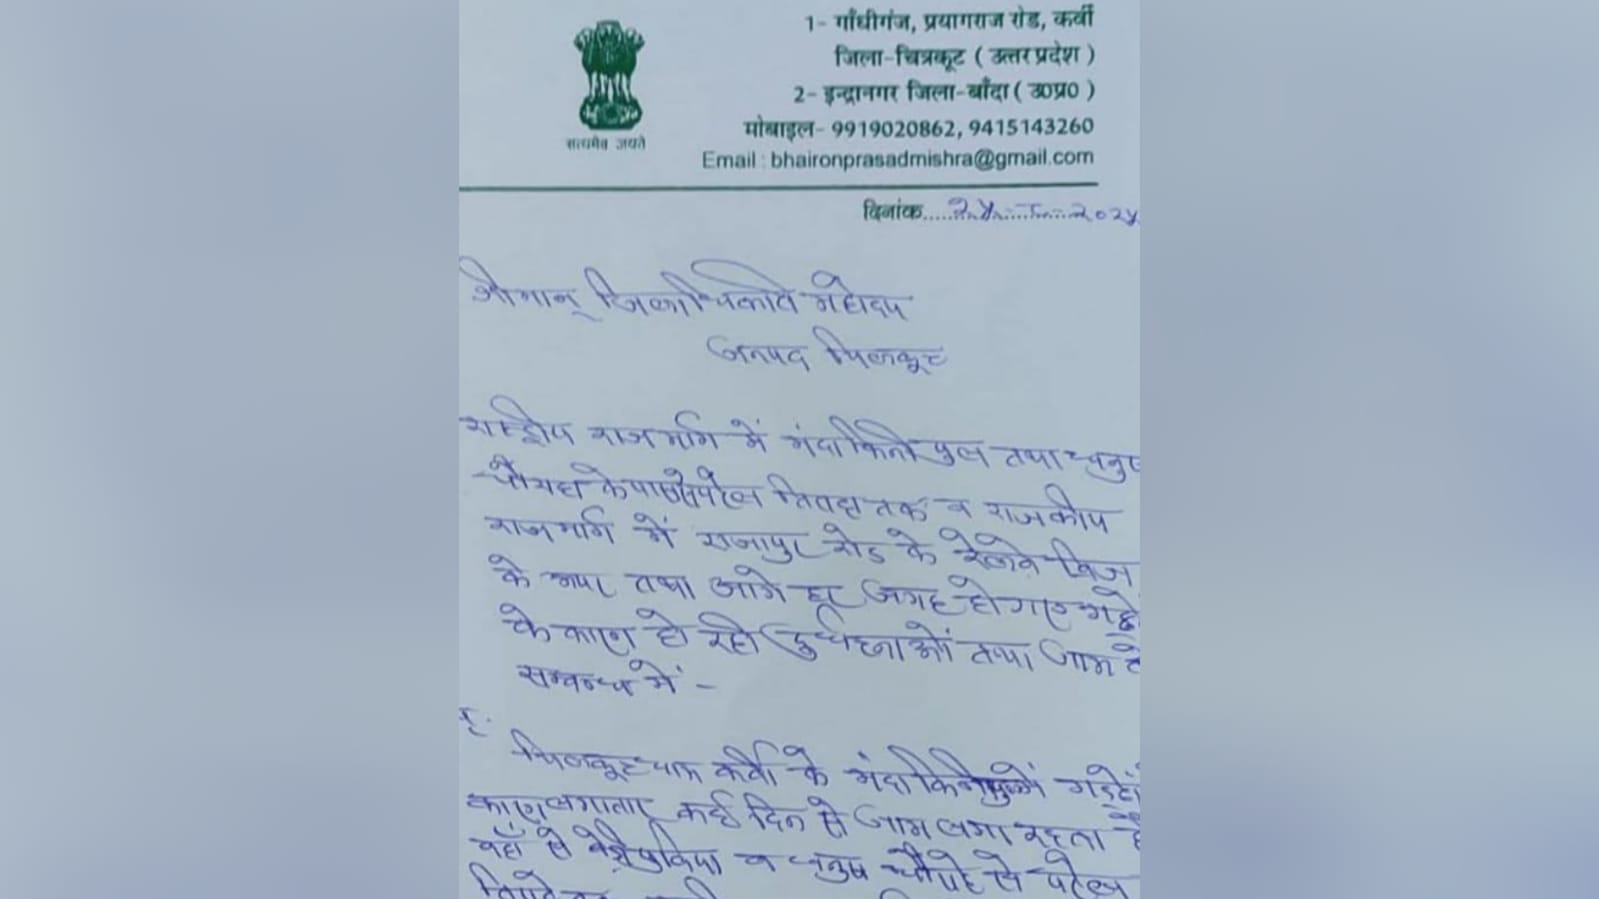 1- गाँधीगंज, प्रयागराज रोड, कर्वी
जिला-चित्रकूट ( उत्तर प्रदेश )
2- इन्द्रानगर जिला-बाँदा ( उ0प्र0 )
मोबाइल- 9919020862, 9415143260
Email : bhaironprasadmishra@gmail.com
सत्यमेव जयते
दिनांक
श्रीमान् जिलाधिकारी महोदय
जनपद चित्रकूट
राष्ट्रीय राजमार्ग में मंदाकिनी पुल तथा
के पास से पटेल तिराहा तक व राजकीय
राजमार्ग में राजापुर रोड के रेलवे ब्रिज
के ऊपर तथा आगे हर जगह हो गए गड्ढों
के कारण हो रही दुर्घटनाओं तथा जाम के
सम्बन्ध में -
चित्रकूट धाम कर्वी के मंदाकिनी पुल में
कारण लगातार कई दिन से जाम लगा रहता है
वहाँ से व धनुष चौराहे से पटेल